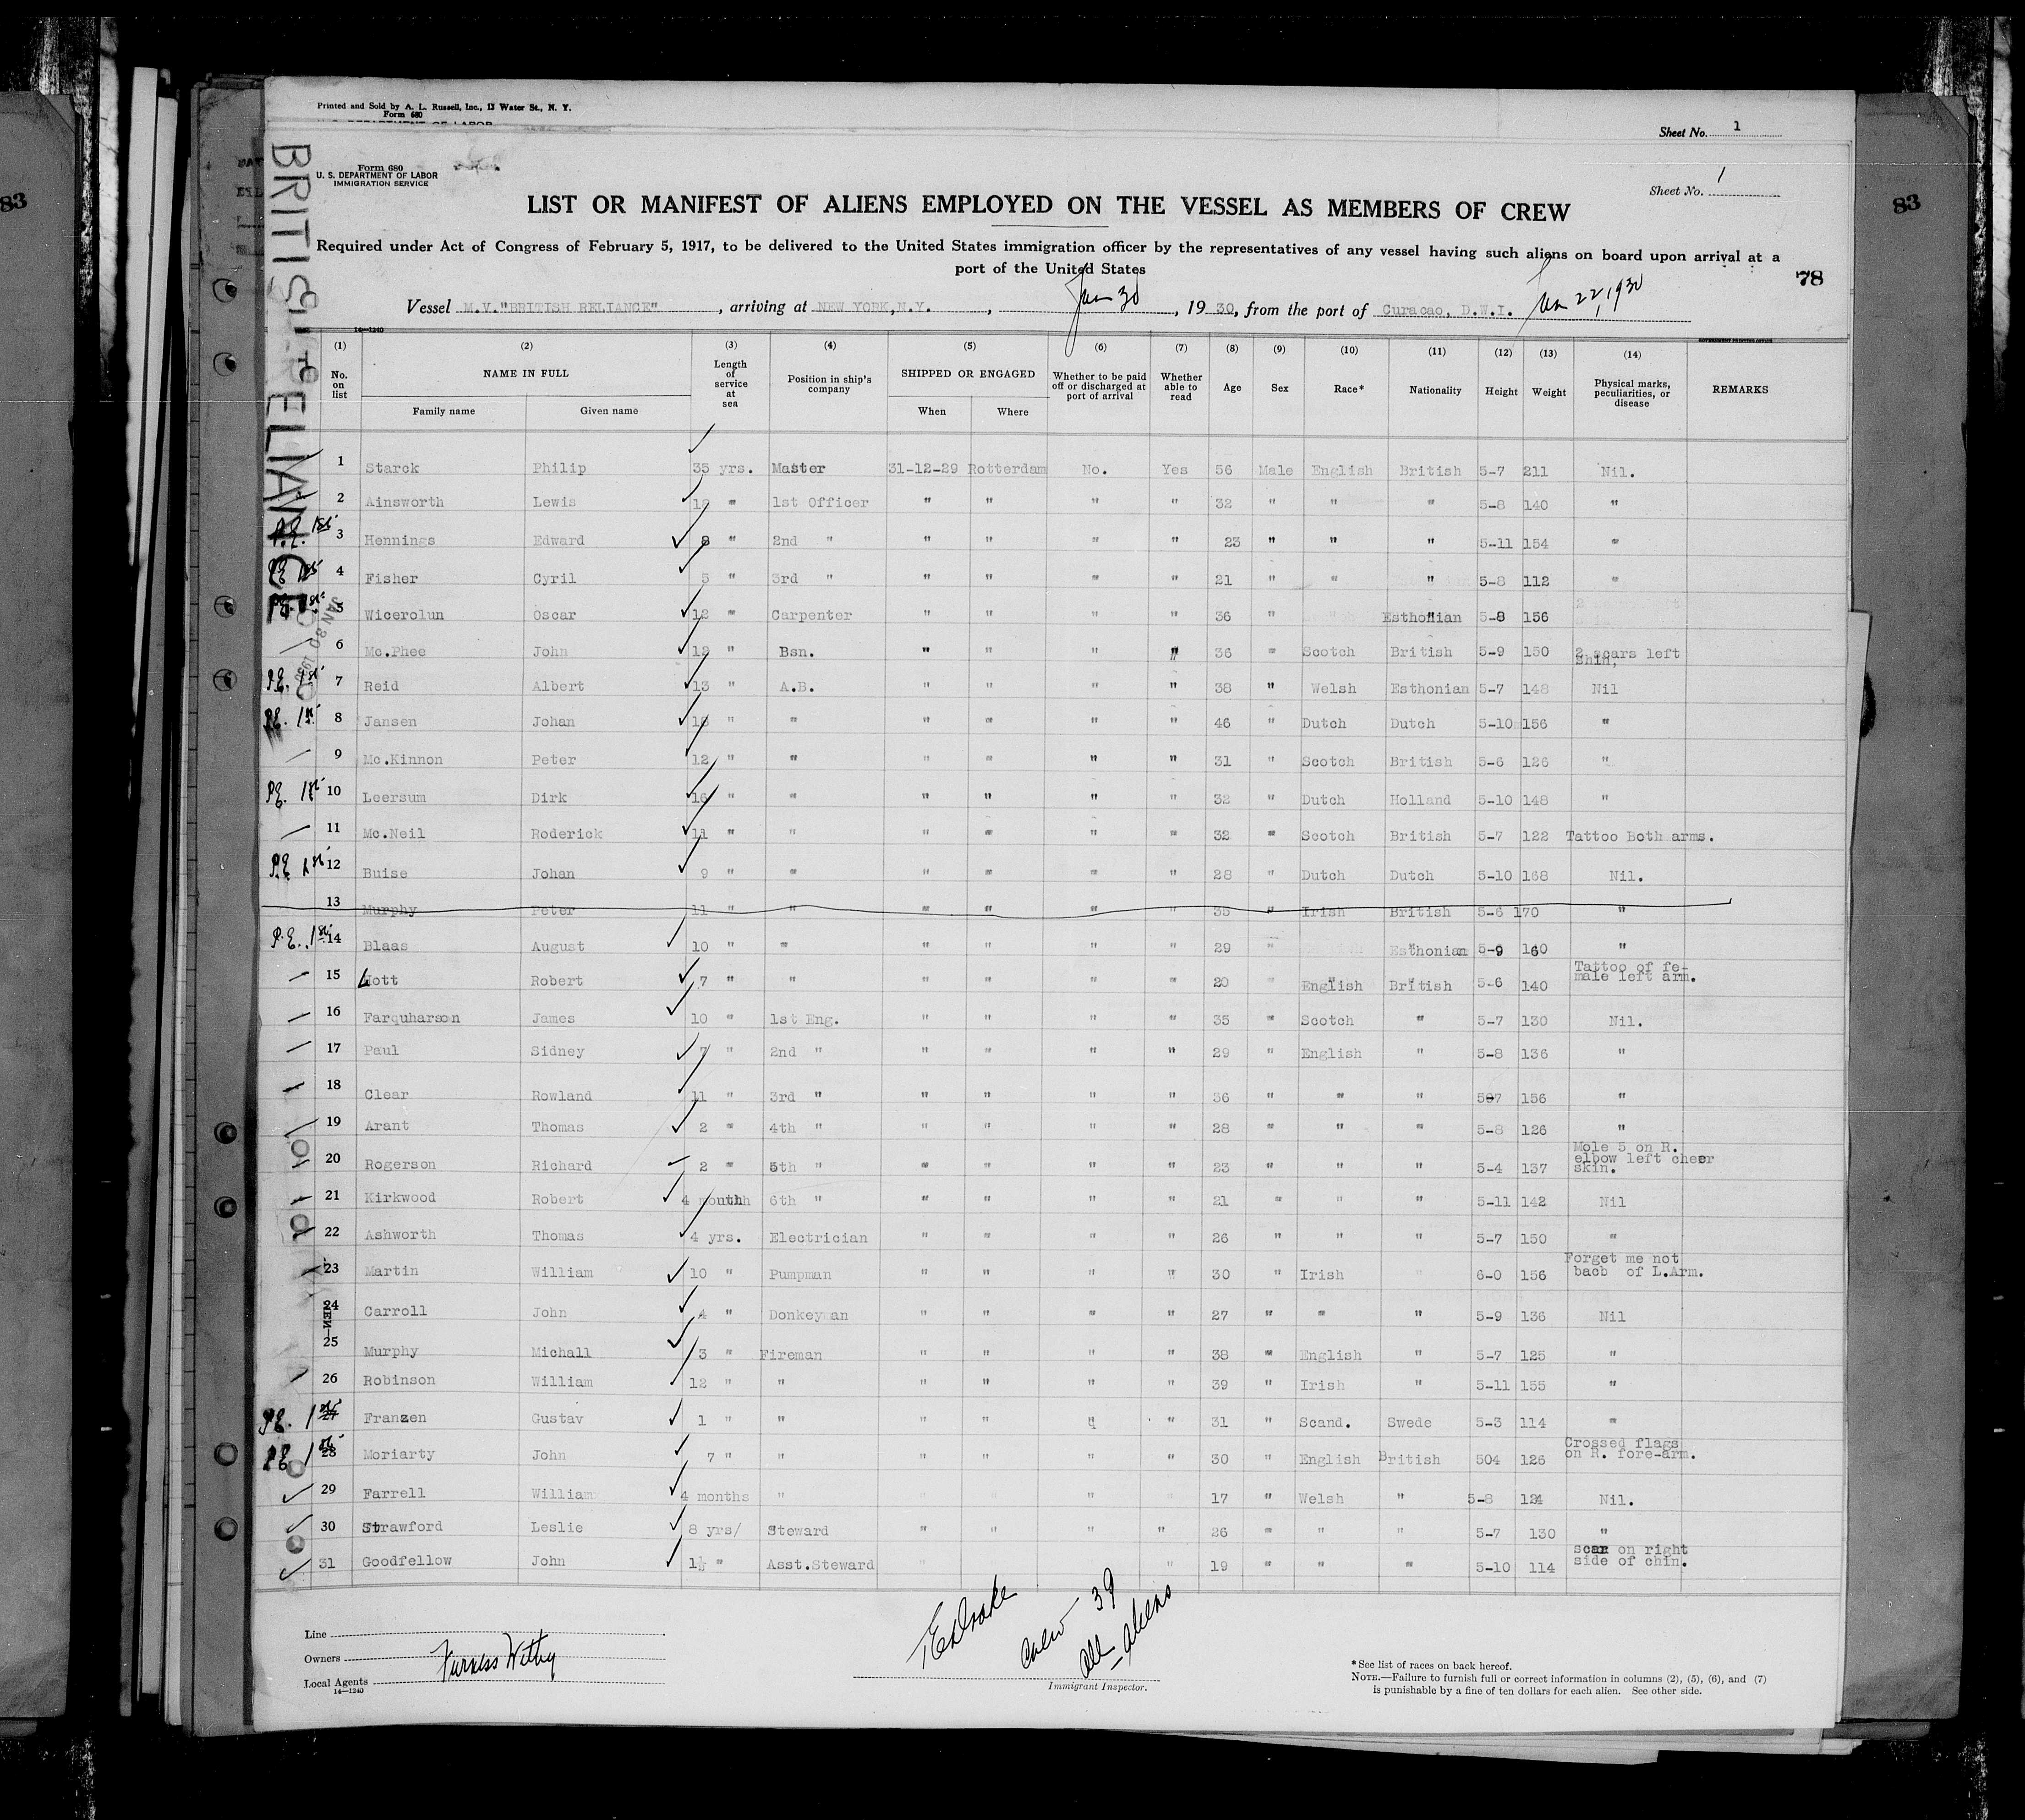 Printed and Sold by A. L. Russell, Inc., 13 Water St., N. Y.
Form 680
U. S. DEPARTMENT OF LABOR
Sheet No. 1
Form 680
U. S. DEPARTMENT OF LABOR
IMMIGRATION SERVICE
Sheet No. 1
BRITISH RELIANCE
83
83
78
LIST OR MANIFEST OF ALIENS EMPLOYED ON THE VESSEL AS MEMBERS OF CREW
Required under Act of Congress of February 5, 1917, to be delivered to the United States immigration officer by the representatives of any vessel having such aliens on board upon arrival at a
port of the United States
Vessel M.V."BRITISH RELIANCE", arriving at NEW YORK,N.Y., Jan 30, 1930, from the port of Curacao, D.W.I. Jan 22, 1930
14—1240
(1) (2) (3) (4) (5) (6) (7) (8) (9) (10) (11) (12) (13) (14)
No. on list NAME IN FULL Family name Given name Length of service at sea Position in ship's company SHIPPED OR ENGAGED When Where Whether to be paid off or discharged at port of arrival Whether able to read Age Sex Race* Nationality Height Weight Physical marks, peculiarities, or disease REMARKS
1 Starck Philip 35 yrs. Master 31-12-29 Rotterdam No. Yes 56 Male English British 5-7 211 Nil.
2 Ainsworth Lewis " 1st Officer " " " " 32 " " " 5-8 140 "
P.E. 1st 3 Hennings Edward 8 " 2nd " " " " " 23 " " " 5-11 154 "
P.E. 1st 4 Fisher Cyril 5 " 3rd " " " " " 21 " " " 5-8 112 "
P.E. 1st 5 Wicerolun Oscar 12 " Carpenter " " " " 36 " Esthonian 5-8 156
6 Mc.Phee John 12 " Bsn. " " " " 36 " Scotch British 5-9 150 2 scars left shin,
P.E. 1st 7 Reid Albert 13 " A.B. " " " " 38 " Welsh Esthonian 5-7 148 Nil
P.E. 1st 8 Jansen Johan 18 " " " " " " 46 " Dutch Dutch 5-10 156 "
9 Mc.Kinnon Peter 12 " " " " " " 31 " Scotch British 5-6 126 "
P.E. 1st 10 Leersum Dirk 16 " " " " " " 32 " Dutch Holland 5-10 148 "
11 Mc.Neil Roderick 11 " " " " " " 32 " Scotch British 5-7 122 Tattoo Both arms.
P.E. 1st 12 Buise Johan 9 " " " " " " 28 " Dutch Dutch 5-10 168 Nil.
13 Murphy Peter 11 " " " " " 35 " Irish British 5-6 170 "
P.E. 1st 14 Blaas August 10 " " " " " " 29 " Esthonian 5-9 160 "
15 Lott Robert 7 " " " " " " 20 " English British 5-6 140 Tattoo of fe-male left arm.
16 Farquharson James 10 " 1st Eng. " " " " 35 " Scotch " 5-7 130 Nil.
17 Paul Sidney 7 " 2nd " " " " " 29 " English " 5-8 136 "
18 Clear Rowland 11 " 3rd " " " " " 36 " " " 5-7 156 "
19 Arant Thomas 2 " 4th " " " " " 28 " " " 5-8 126 "
20 Rogerson Richard 2 " 5th " " " " " 23 " " " 5-4 137 Mole 5 on R. elbow left cheer skin.
21 Kirkwood Robert 4 month 6th " " " " " 21 " " " 5-11 142 Nil
22 Ashworth Thomas 4 yrs. Electrician " " " " 26 " " " 5-7 150 "
23 Martin William 10 " Pumpman " " " " 30 " Irish " 6-0 156 Forget me not bacb of L.Arm.
24 Carroll John 4 " Donkeyman " " " " 27 " " " 5-9 136 Nil
25 Murphy Michall 3 " Fireman " " " " 38 " English " 5-7 125 "
26 Robinson William 12 " " " " " " 39 " Irish " 5-11 155 "
P.E. 1st 27 Franzen Gustav 1 " " " " " " 31 " Scand. Swede 5-3 114 "
P.E. 1st 28 Moriarty John 7 " " " " " " 30 " English British 504 126 Crossed flags on R. fore-arm.
29 Farrell William 4 months " " 17 " Welsh " 5-8 124 Nil.
30 Strawford Leslie 8 yrs/ Steward " " " " 26 " " " 5-7 130 "
31 Goodfellow John 1½ " Asst.Steward " 19 " " " 5-10 114 scar on right side of chin.
Line
Owners
Local Agents Furness Withy
14—1240
Crew 39
all aliens
Immigrant Inspector.
*See list of races on back hereof.
NOTE.—Failure to furnish full or correct information in columns (2), (5), (6), and (7)
is punishable by a fine of ten dollars for each alien. See other side.